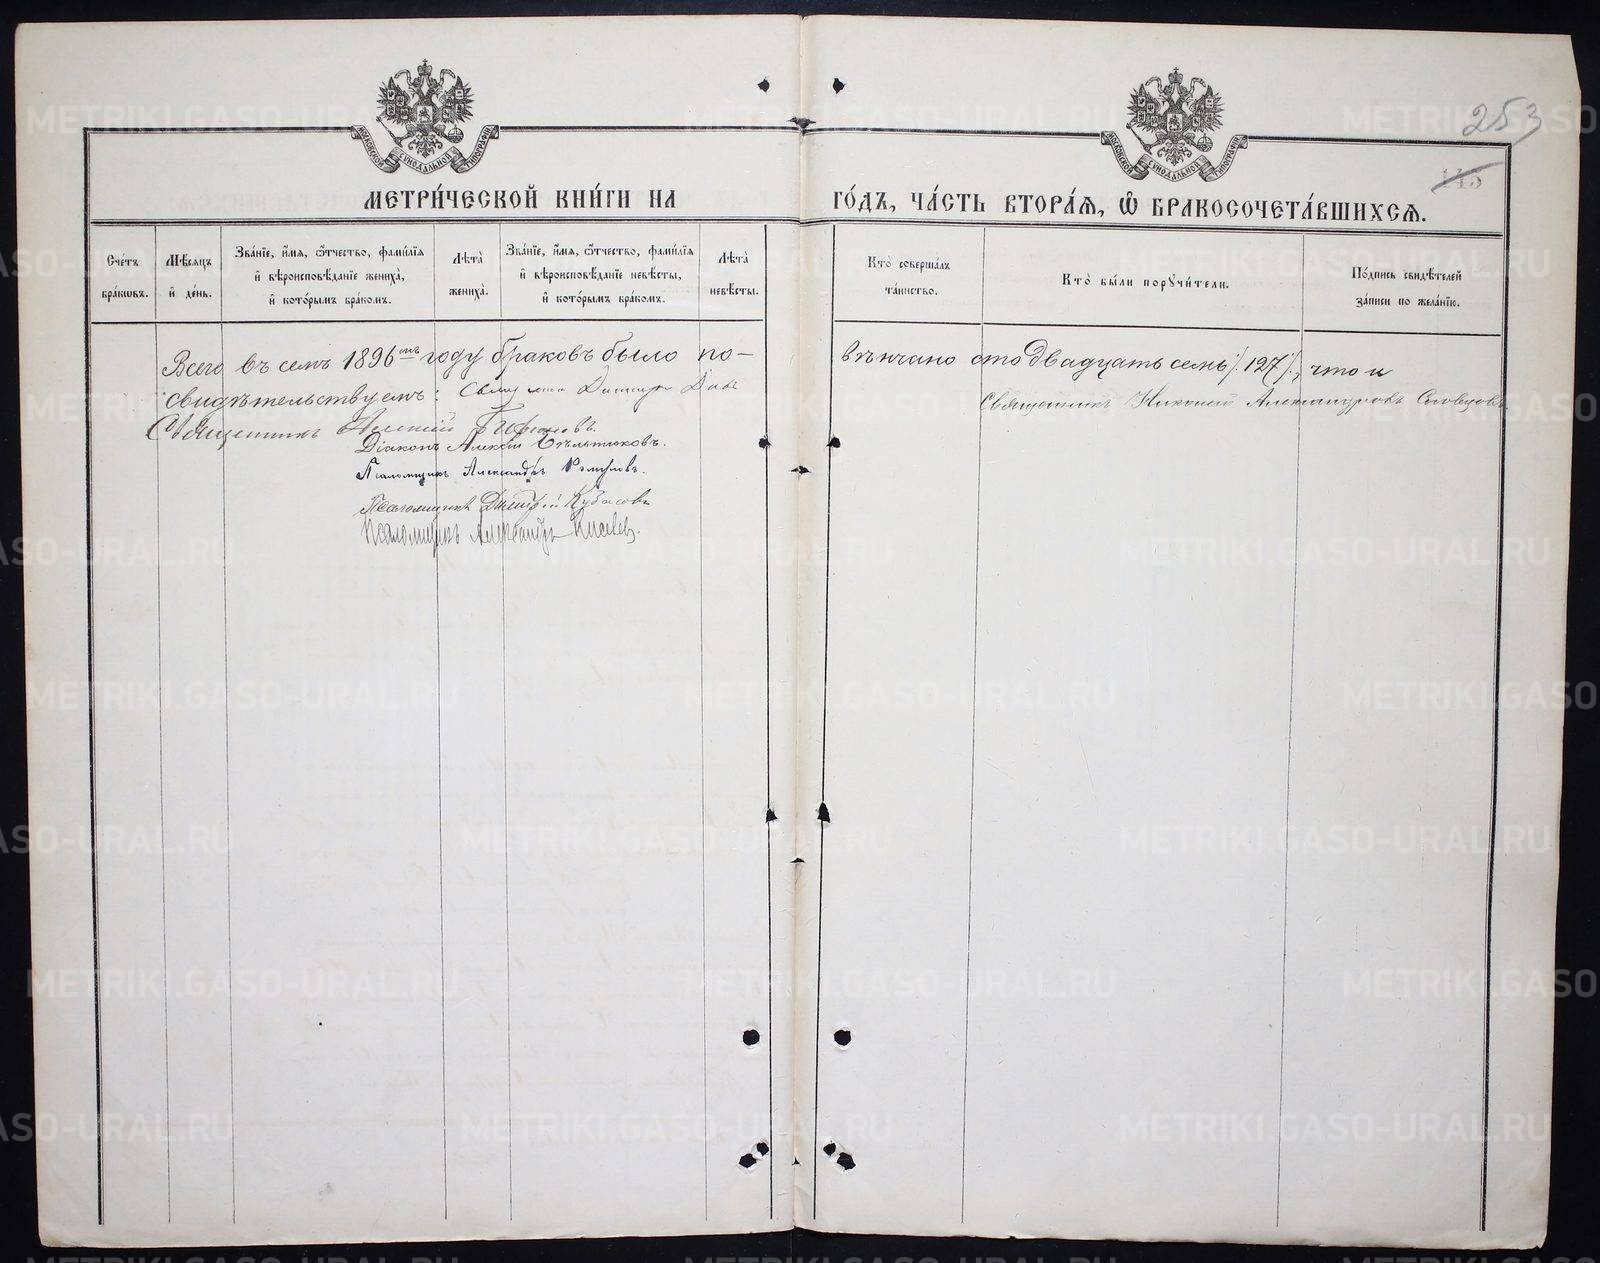 253
145
МОСКОВСКОЙ СУНОДАЛЬНОЙ ТИПОГРАФІИ
МОСКОВСКОЙ СУНОДАЛЬНОЙ ТИПОГРАФІИ
МЕТРИ́ЧЕСКОЙ КНИ́ГИ НА ГО́ДЪ, ЧА́СТЬ ВТОРА́Я, Ѽ БРАКОСОЧЕТА́ВШИХСЯ.
Сче́тъ бра́кѡвъ.
Мѣ́сяцъ и҆ де́нь.
Зва́нїе, и҆́мя, ѻ҆́тчество, фами́лїя и҆ вѣроисповѣ́данїе жениха̀, и҆ кото́рымъ бра́комъ.
Лѣ́та̀ жениха̀.
Зва́нїе, и҆́мя, ѻ҆́тчество, фами́лїя и҆ вѣроисповѣ́данїе невѣ́сты, и҆ кото́рымъ бра́комъ.
Лѣ́та̀ невѣ́сты.
Кто̀ соверша́лъ та́инство.
Кто̀ бы́ли поручи́тели.
По́дпись свидѣ́телей за́писи по жела́нїю.
Всего въ семъ 1896мъ году браковъ было по-
вѣнчано сто двадцать семь /.127/., что и
свидѣтельствуемъ:
Священникъ Николай Александровъ Словцовъ
Священникъ
Діаконъ Алексій
Псаломщикъ Александръ
Псаломщикъ Димитрій Кубасовъ
Псаломщикъ Александръ Киселевъ.
METRIKI.GASO-URAL.RU